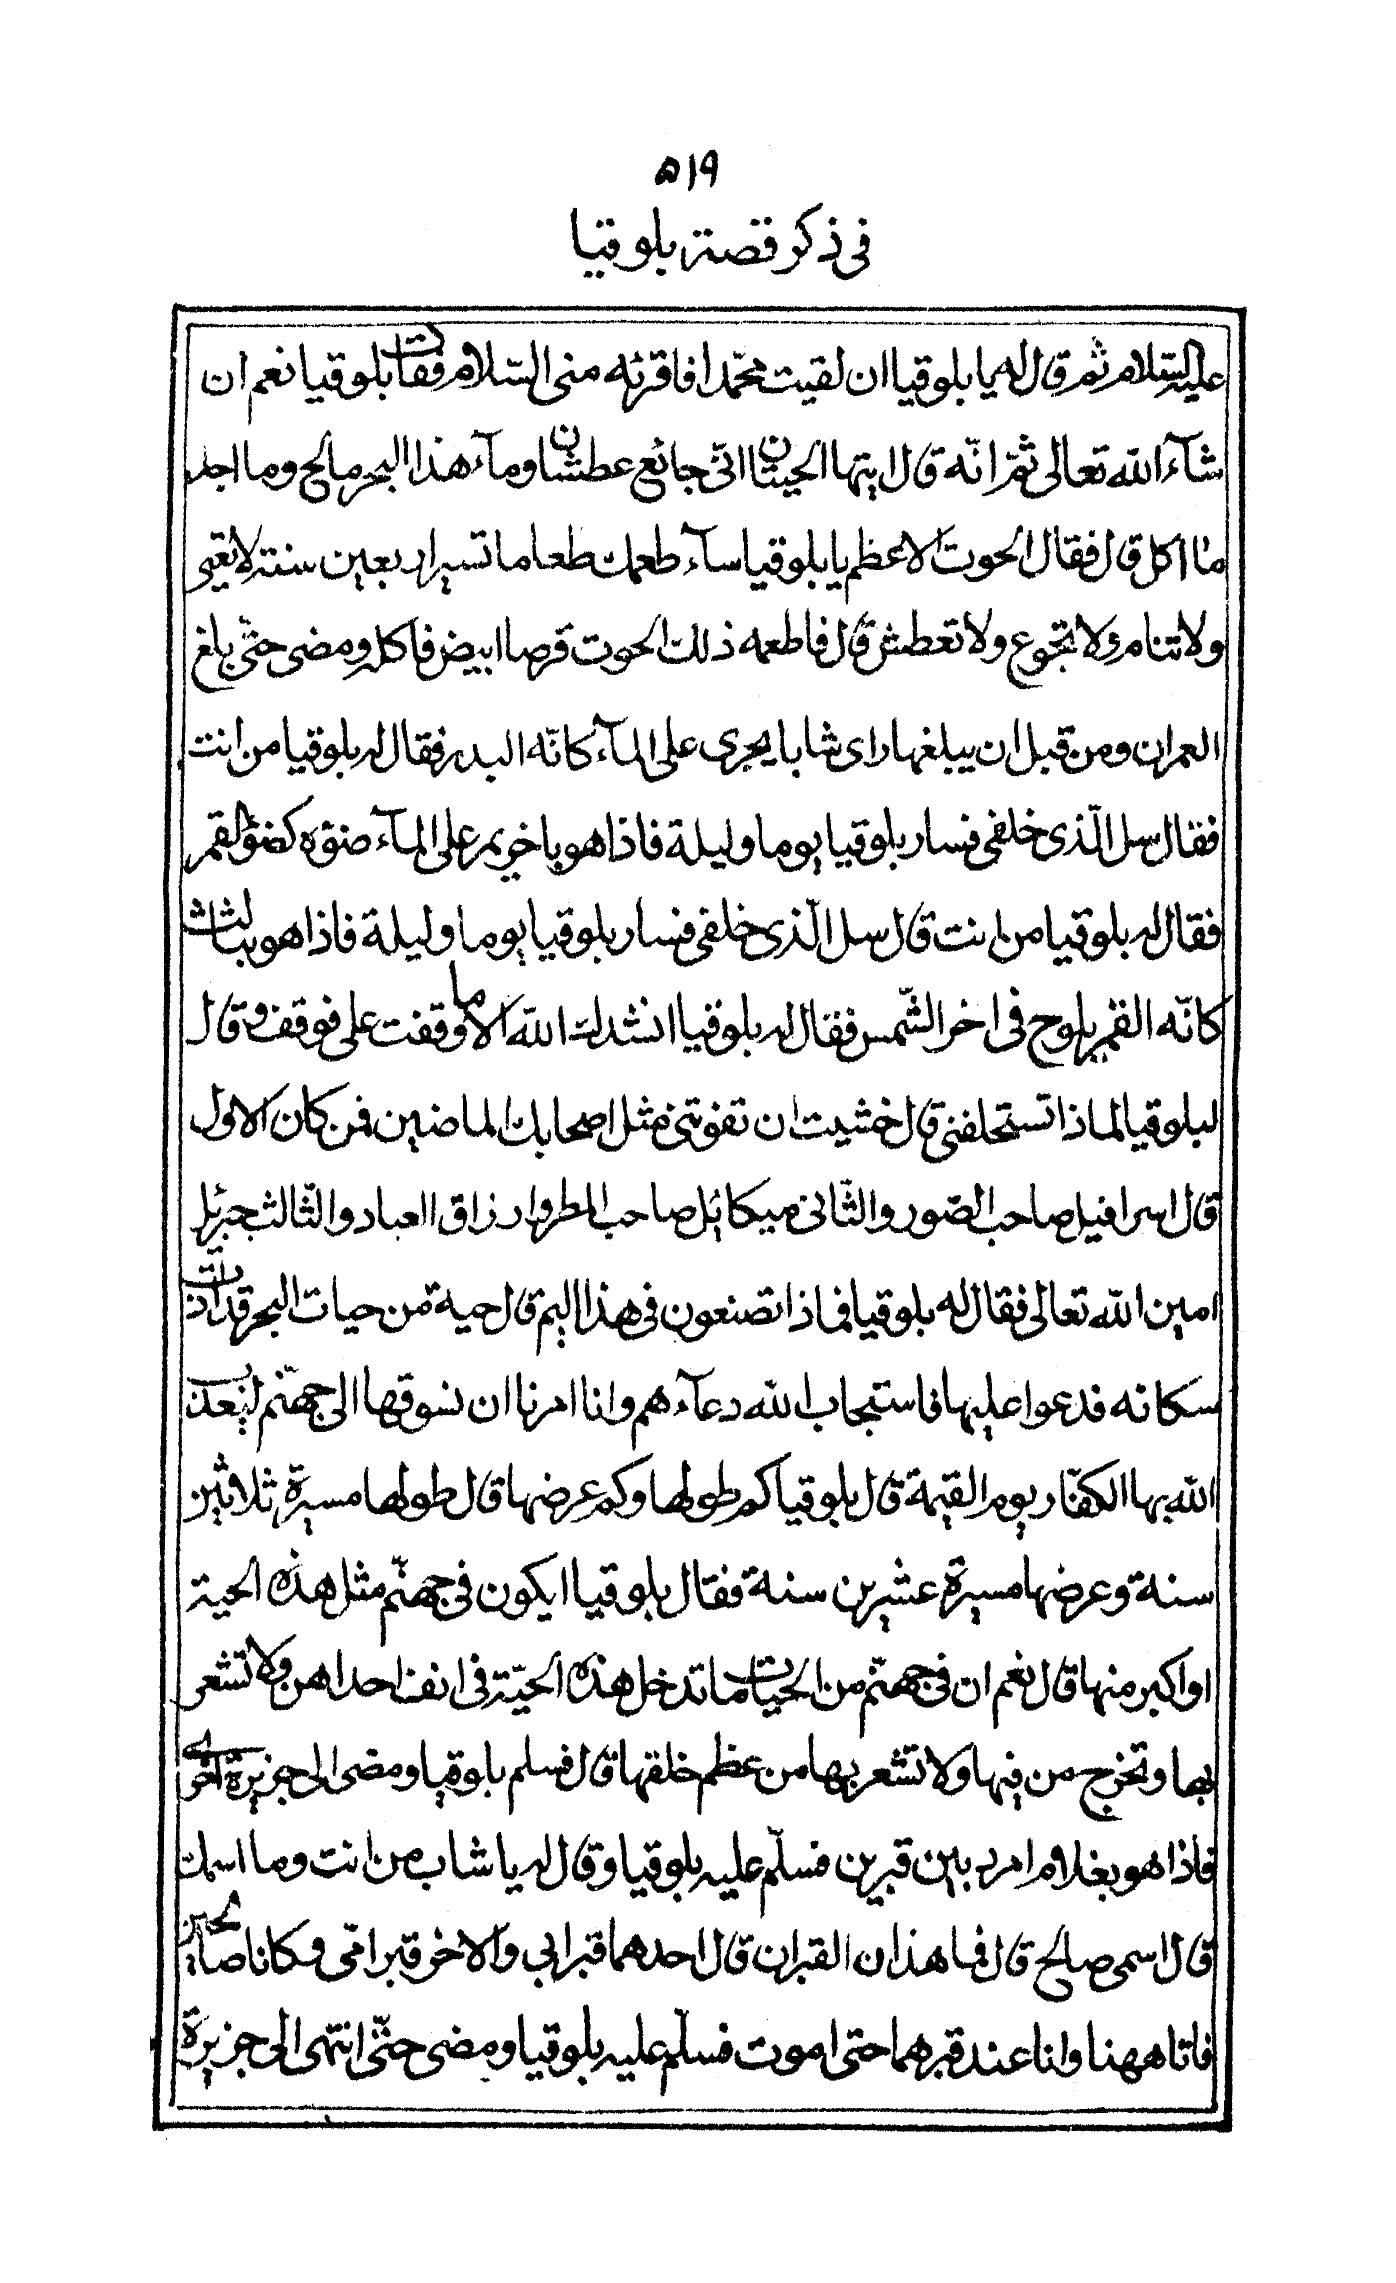 ٥١٩
في ذكر قصة بلوقيا
عليه السّلام ثم قال له يا بلوقيا ان لقيت محمّدا فاقرئه منى السّلام فقال بلوقيا نعم ان
شآء الله تعالى ثم انّه قال ايتها الحيتان انّى جائع عطشان ومآء هذا البحر مالح وما اجد
ما اكل قال فقال الحوت الاعظم يا بلوقيا سآء طعمك طعاما تسير اربعين سنة لا تعيى
ولا تنام ولا تجوع ولا تعطش قال فاطعمه ذلك الحوت قرصا ابيض فاكله ومضى حتّى بلغ
العمران ومن قبل ان يبلغها راى شابا يجرى على المآء كانّه البدر فقال له بلوقيا من انت
فقال سل الّذى خلفى فسار بلوقيا يوما وليلة فاذا هو باخر يمر على المآء ضوؤه كضوء القمر
فقال له بلوقيا من انت قال سل الّذى خلفى فسار بلوقيا يوما وليلة فاذا هو بثالث
كانّه القمر يلوح فى اخر الشّمس فقال له بلوقيا انشدك الله الا ما وقفت على فوقف وقال
لبلوقيا لماذا تستحلفنى قال خشيت ان تفوتنى مثل اصحابك الماضين فمن كان الاول
قال اسرافيل صاحب الصّور والثّانى ميكائيل صاحب المطر وارزاق العباد والثّالث جبرئيل
امين الله تعالى فقال له بلوقيا فماذا تصنعون فى هذا اليم قال حية من حيات البحر قد اذت
سكانه فدعوا عليها فاستجاب الله دعآءهم وانا امرنا ان نسوقها الى جهنّم ليعذب
الله بها الكفّار يوم القيمة قال بلوقيا كم طولها وكم عرضها قال طولها مسيرة ثلاثين
سنة وعرضها مسيرة عشرين سنة فقال بلوقيا ايكون فى جهنّم مثل هذه الحية
او اكبر منها قال نعم ان فى جهنّم من الحيات ما تدخل هذه الحيّة فى انف احداهن ولا تشعر
بها وتخرج من فيها ولا تشعر بها من عظم خلقها قال فسلم بلوقيا ومضى الى جزيرة اخرى
فاذا هو بغلام امرد بين قبرين فسلّم عليه بلوقيا وقال له يا شاب من انت وما اسمك
قال اسمى صالح قال فما هذان القبران قال احدهما قبر ابى والاخر قبر امّى وكانا صالحين
فاتا ههنا وانا عند قبرهما حتى اموت فسلّم عليه بلوقيا ومضى حتّى انتهى الى جزيرة